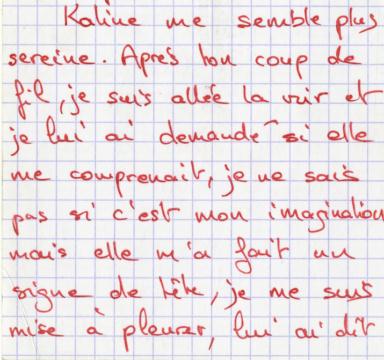 Kaline me semble plus
sereine. Après ton coup de
fil, je suis allée la voir et
je lui ai demandé si elle
me comprenait, je ne sais
pas si c'est mon imagination
mais elle m'a fait un
signe de tête, je me suis
mise à pleurer, lui ai dit